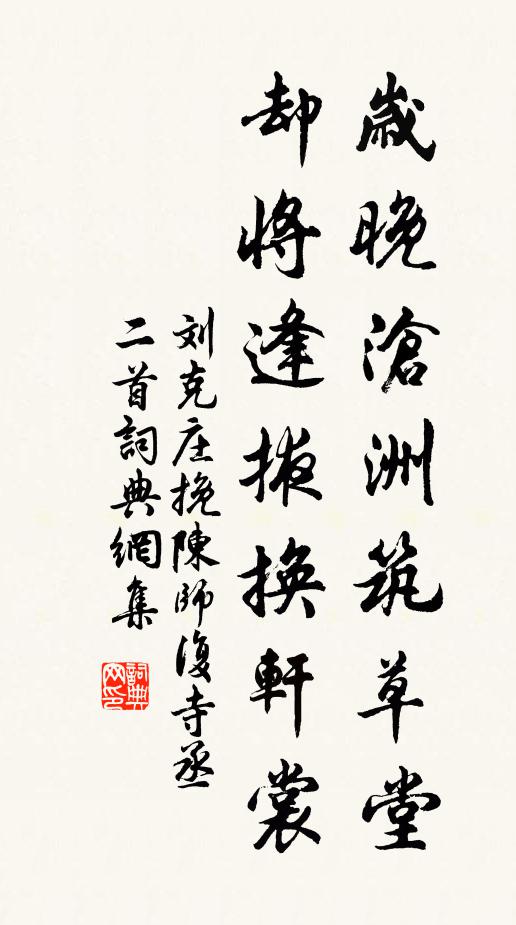 歲晚滄洲筑草堂
却將逢掖換軒裳
刘克庄挽陳師復寺丞
二首詞典網集
詞典网印